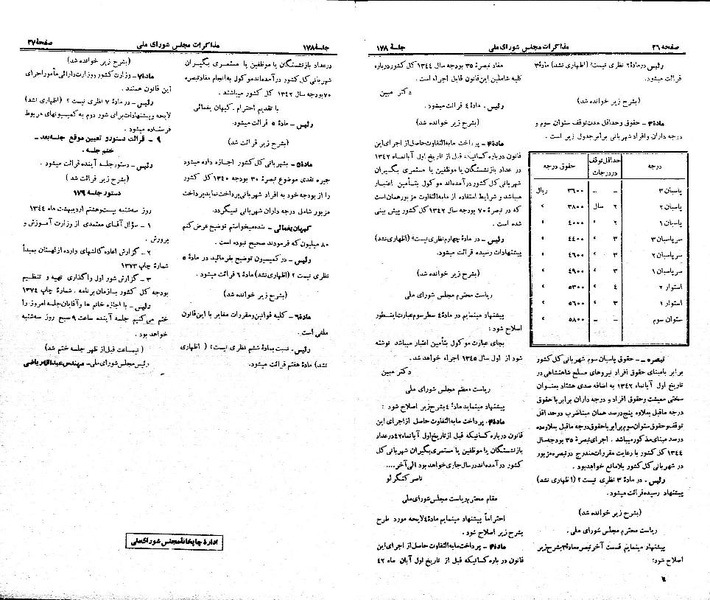 صفحهٔ ۳۶
مذاکرات مجلس شورای ملی
جلسهٔ ۱۷۸
رئیس- درمادهٔ ۲ نظری نیست؟ (اظهاری نشد) مادهٔ۳
قرائت میشود.
(بشرح زیر خوانده شد)
مادهٔ۳ – حقوق وحداقل مدت‌توقف ستوان سوم و
درجه داران وافراد شهربانی برابرجدول زیر است.
درجه
حداقل‌توقف دردرجات
حقوق درجه
پاسبان ۳ – – ۳۶۰۰ ریال
پاسبان ۲ ۲ سال ۳۸۰۰ »
پاسبان ۱
سرپاسبان ۳ ۴۴۰۰ »
سرپاسبان ۲
سرپاسبان ۱ ۴۹۰۰ »
استوار ۲
استوار ۱
ستوان سوم – – ۵۸۰۰ »
تبصره – حقوق پاسبان سوم شهربانی کل کشور
برابر بامبنای حقوق افراد نیروهای مسلح شاهنشاهی در
تاریخ اول آبانماه ۱۳۴۲ به اضافه صدی هشتاد بعنوان
سختی معیشت وحقوق افراد و درجه داران برابر با حقوق
درجه ماقبل بعلاوه پنج‌درصد همان مبنا ضرب درحداقل
توقف وحقوق ستوان‌سوم برابر باحقوق درجه ماقبل بعلاوه‌ده
درصد مبنای مذکور میباشد. اجرای تبصرهٔ ۳۵ بودجه‌سال
۱۳۴۴ کل کشور با رعایت مقررات مندرج در تبصره مزبور
در شهربانی کل کشور بلامانع خواهد بود.
رئیس- در مادهٔ ۳ نظری نیست؟ (اظهاری نشد)
پیشنهاد رسیده قرائت میشود.
(بشرح زیر خوانده شد)
ریاست محترم مجلس شورای ملی.
پیشنهاد مینمایم قسمت آخر تبصره مادهٔ۳ بشرح زیر
اصلاح شود:
مفاد تبصرهٔ ۳۵ بودجه سال ۱۳۴۴ کل کشور درباره
کلیه شاملین این قانون قابل اجراء است.
دکتر مبین
رئیس- مادهٔ ۴ قرائت میشود.
(بشرح زیر خوانده شد)
مادهٔ۴- پرداخت مابه‌التفاوت حاصل از اجرای این
قانون درباره کسانیکه قبل از تاریخ اول آبانماه ۱۳۴۲
در عداد بازنشستگان یا موظفین یا مستمری بگیران
شهربانی کل کشور درآمده‌اند موکول بتأمین اعتبار
میباشد و شرایط استفاده از مابه‌التفاوت مزبور همان است
که در تبصرهٔ ۷۰ بودجه سال ۱۳۴۲ کل کشور پیش بینی
شده است.
رئیس- در مادهٔ چهارم نظری نیست؟ (اظهاری نشد)
پیشنهادات رسیده قرائت میشود.
(بشرح زیر خوانده شد)
ریاست محترم مجلس شورای ملی
پیشنهاد مینمایم در مادهٔ ۴ سطر سوم عبارت اینطور
اصلاح شود:
بجای عبارت موکول بتأمین اعتبار میباشد نوشته
شود از اول سال ۱۳۴۵ اجراء خواهد شد.
دکتر مبین
ریاست معظم مجلس شورای ملی
پیشنهاد مینماید مادهٔ ۴ بشرح زیر اصلاح شود:
مادهٔ۴- پرداخت مابه‌التفاوت حاصل از اجرای این
قانون درباره کسانیکه قبل از تاریخ اول آبانماه۴۲ درعداد
بازنشستگان یا موظفین یا مستمری بگیران شهربانی کل
کشور درآمده‌اند درسال جاری خواهد بود الی آخر....
ناصر کنگرلو
مقام محترم ریاست مجلس شورای ملی
احتراماً پیشنهاد مینمایم مادهٔ ۴ لایحه مورد طرح
بشرح زیر اصلاح شود:
مادهٔ۴- پرداخت مابه‌التفاوت حاصل از اجرای این
قانون درباره کسانیکه قبل از تاریخ اول آبان ماه ۴۲
۶
جلسهٔ ۱۷۸
مذاکرات مجلس شورای ملی
صفحهٔ ۳۷
درعداد بازنشستگان یا موظفین یا مستمری بگیران
شهربانی کل کشور درآمده‌اند موکول به‌انجام مفادتبصره
۷۰ بودجه سال ۱۳۴۲ کل کشور میباشد.
با تقدیم احترام. کیهان یغمائی
رئیس- مادهٔ ۵ قرائت میشود.
(بشرح زیر خوانده شد)
مادهٔ۵ – بشهربانی کل کشور اجازه داده میشود
جیره نقدی موضوع تبصرهٔ ۳۰ بودجه ۱۳۴۰ کل کشور
را از بودجه خود به افراد شهربانی پرداخت نماید پرداخت
مزبور شامل درجه داران شهربانی نمیگردد.
کیهان‌یغمائی- بنده میخواستم توضیح عرض کنم
۸۰ میلیون که فرمودند صحیح نبوده است.
رئیس- درکمیسیون توضیح بفرمائید در مادهٔ ۵
نظری نیست؟ (اظهاری نشد) مادهٔ ۶ قرائت میشود.
(بشرح زیر خوانده شد)
مادهٔ۶- کلیه قوانین‌ومقررات مغایر با این قانون
ملغی است.
رئیس- نسبت بمادهٔ ششم نظری نیست؟ (اظهاری
نشد) مادهٔ هفتم قرائت میشود.
(بشرح زیر خوانده شد)
مادهٔ۷- وزارت کشور ووزارت دارائی مأمور اجرای
این قانون هستند.
رئیس- در مادهٔ ۷ نظری نیست؟ (اظهاری نشد)
لایحه وپیشنهادات برای شور دوم به کمیسیونهای مربوط
فرستاده میشود.
۹ – قرائت دستورو تعیین موقع جلسه‌بعد-
ختم جلسه.
رئیس- دستور جلسه آینده قرائت میشود.
(بشرح زیر قرائت شد)
دستور جلسه ۱۷۹
روز سه‌شنبه بیست‌وهشتم اردیبهشت ماه ۱۳۴۴
۱ – سؤال آقای معتمدی از وزارت آموزش و
پرورش.
۲ – گزارش اعاده گالشهای وارده از لهستان بمبدأ
شماره چاپ ۱۳۷۳
۳ – گزارش شور اول واگذاری تهیه و تنظیم
بودجه کل کشور بسازمان برنامه. شماره چاپ ۱۳۷۴
رئیس- با اجازه خانم‌ها وآقایان جلسه امروز را
ختم می‌کنیم جلسه آینده ساعت ۹ صبح روز سه‌شنبه
خواهد بود.
(نیمساعت قبل‌از ظهر جلسه ختم شد)
رئیس مجلس شورای ملی- مهندس عبدالله ریاضی
ادارهٔ چاپخانهٔ مجلس شورای ملی